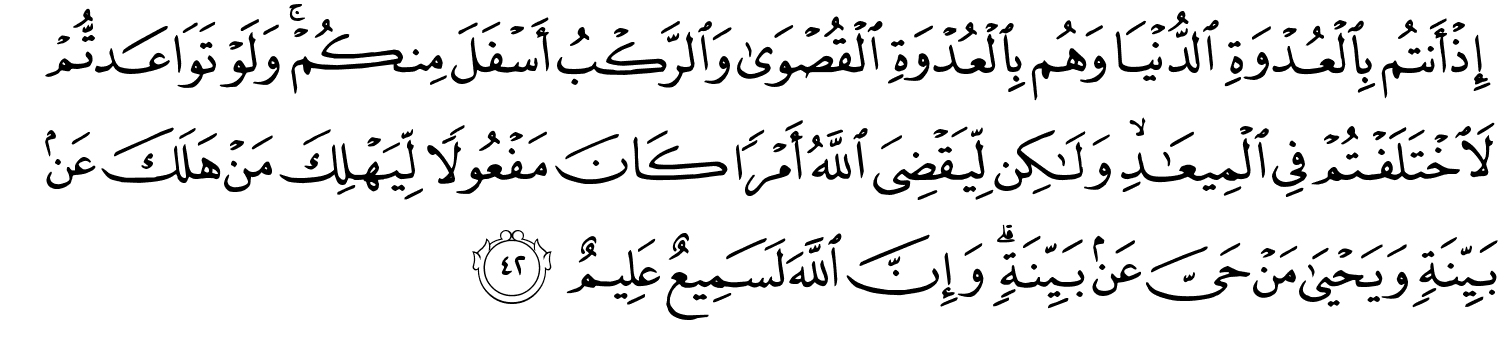 إِذۡ أَنتُم بِٱلۡعُدۡوَةِ ٱلدُّنۡيَا وَهُم بِٱلۡعُدۡوَةِ ٱلۡقُصۡوَىٰ وَٱلرَّكۡبُ أَسۡفَلَ مِنكُمۡۚ وَلَوۡ تَوَاعَدتُّمۡ
لَٱخۡتَلَفۡتُمۡ فِي ٱلۡمِيعَٰدِۙ وَلَٰكِن لِّيَقۡضِيَ ٱللَّهُ أَمۡرٗا كَانَ مَفۡعُولٗا لِّيَهۡلِكَ مَنۡ هَلَكَ عَنۢ
بَيِّنَةٖ وَيَحۡيَىٰ مَنۡ حَيَّ عَنۢ بَيِّنَةٖۗ وَإِنَّ ٱللَّهَ لَسَمِيعٌ عَلِيمٌ ٤٢